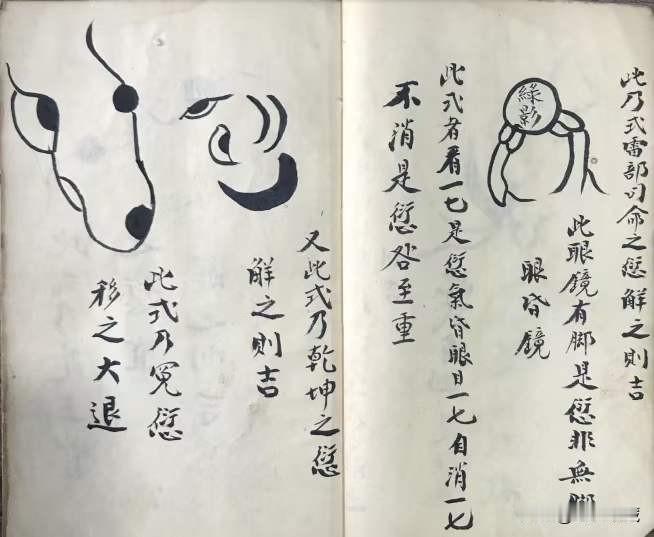 此乃式雷部司命之愆解之則吉
綠影
此眼鏡有脚是愆非無脚
眼昏鏡
此式者看一七是愆氣昏眼目一七自消一七
不消是愆咎至重
又此式乃乾坤之愆
解之則吉
此式乃冤愆
移之大退